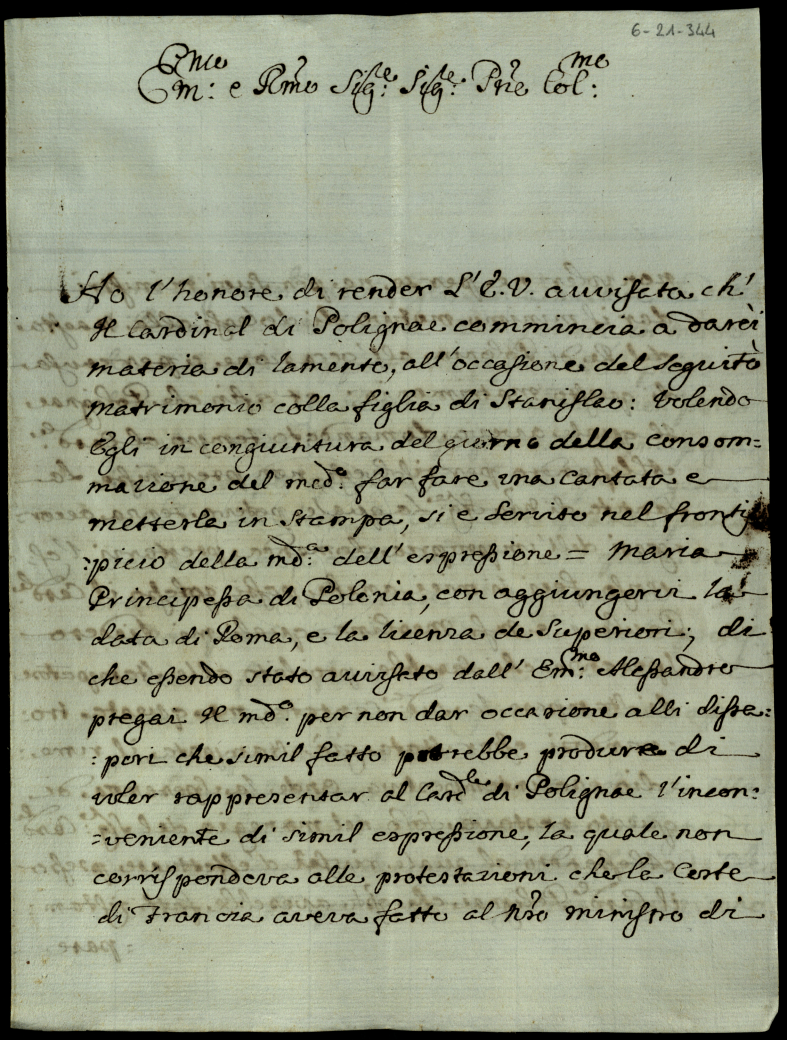 6-21-344
Em:mo e Rmo Sig:re Sig:re Pne Col:mo
Ho l'honore di render L'E.V. avvisata ch'
Il Cardinal di Polignac commincia a darci
materia di lamento, all'occasione del seguito
matrimonio colla figlia di Stanislao: Volendo
Egli in congiuntura del giorno della consom=
mazione del med:o far fare una Cantata e
metterla in stampa, si è servito nel fronti
:picio della md:a dell'espressione = Maria
Principessa di Polonia, con aggiungervi la
data di Roma, e la licenza de Superiori; di
che essendo stato avvisato dall' Em:mo Alessandro
pregai Il md:o per non dar occasione alli dissa:
:pori che simil fatto potrebbe produre di
voler rappresentar al Card:le di Polignac l'incon:
=veniente di simil espressione, la quale non
corrispondeva alle protestazioni che la Corte
di Francia aveva fatto al nro ministro di